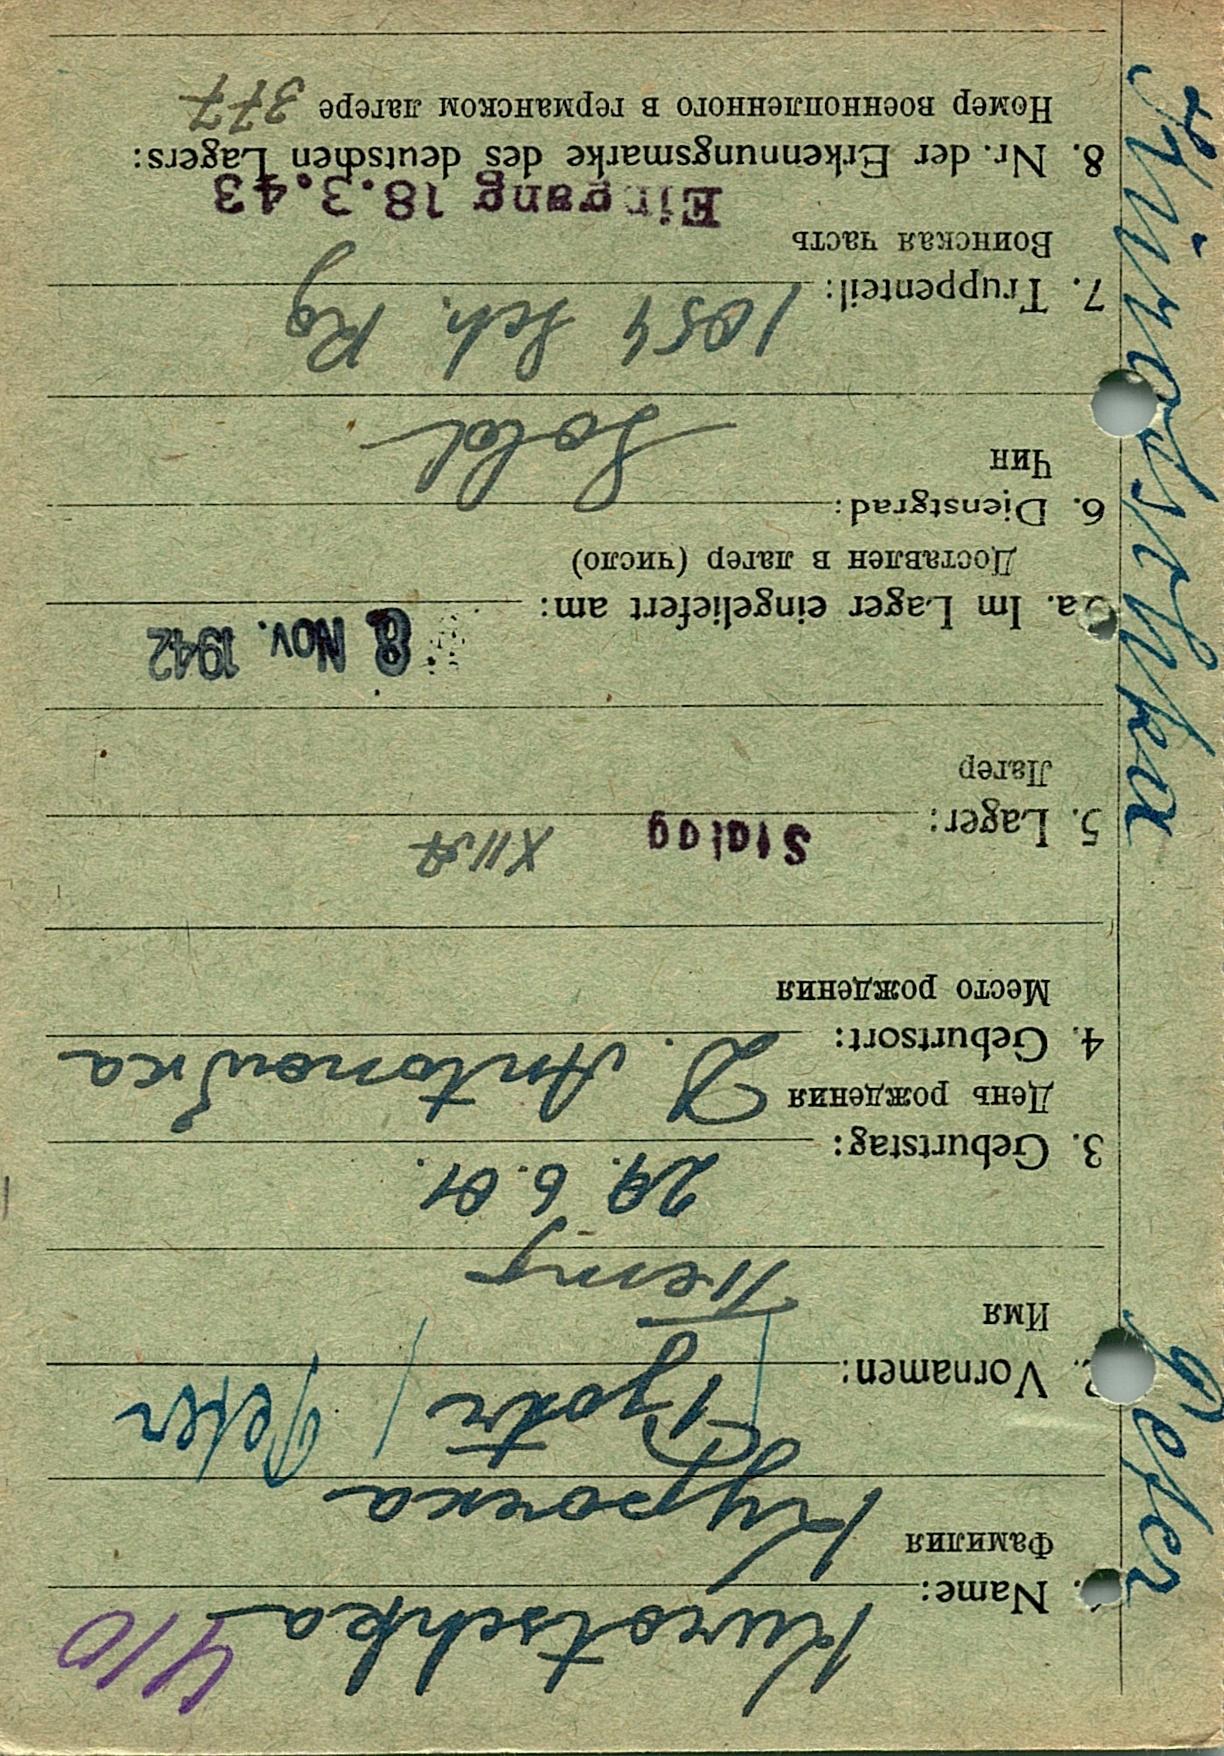 410
1. Name: Kurotschka
Фамилия Курочка
2. Vornamen: Pjotr / Peter
Имя Петр
3. Geburtstag: 29. 6. 01.
День рождения
4. Geburtsort: D. Antonowka
Место рождения
5. Lager: Stalag XII A
Лагер
5a. Im Lager eingeliefert am: 8. Nov. 1942
Доставлен в лагер (число)
6. Dienstgrad: Sold
Чин
7. Truppenteil: 1054 Sch. Rg
Воинская часть
Eingang 18.3.43
8. Nr. der Erkennungsmarke des deutschen Lagers:
Номер военнопленного в германском лагере 377
Kurotschka Peter